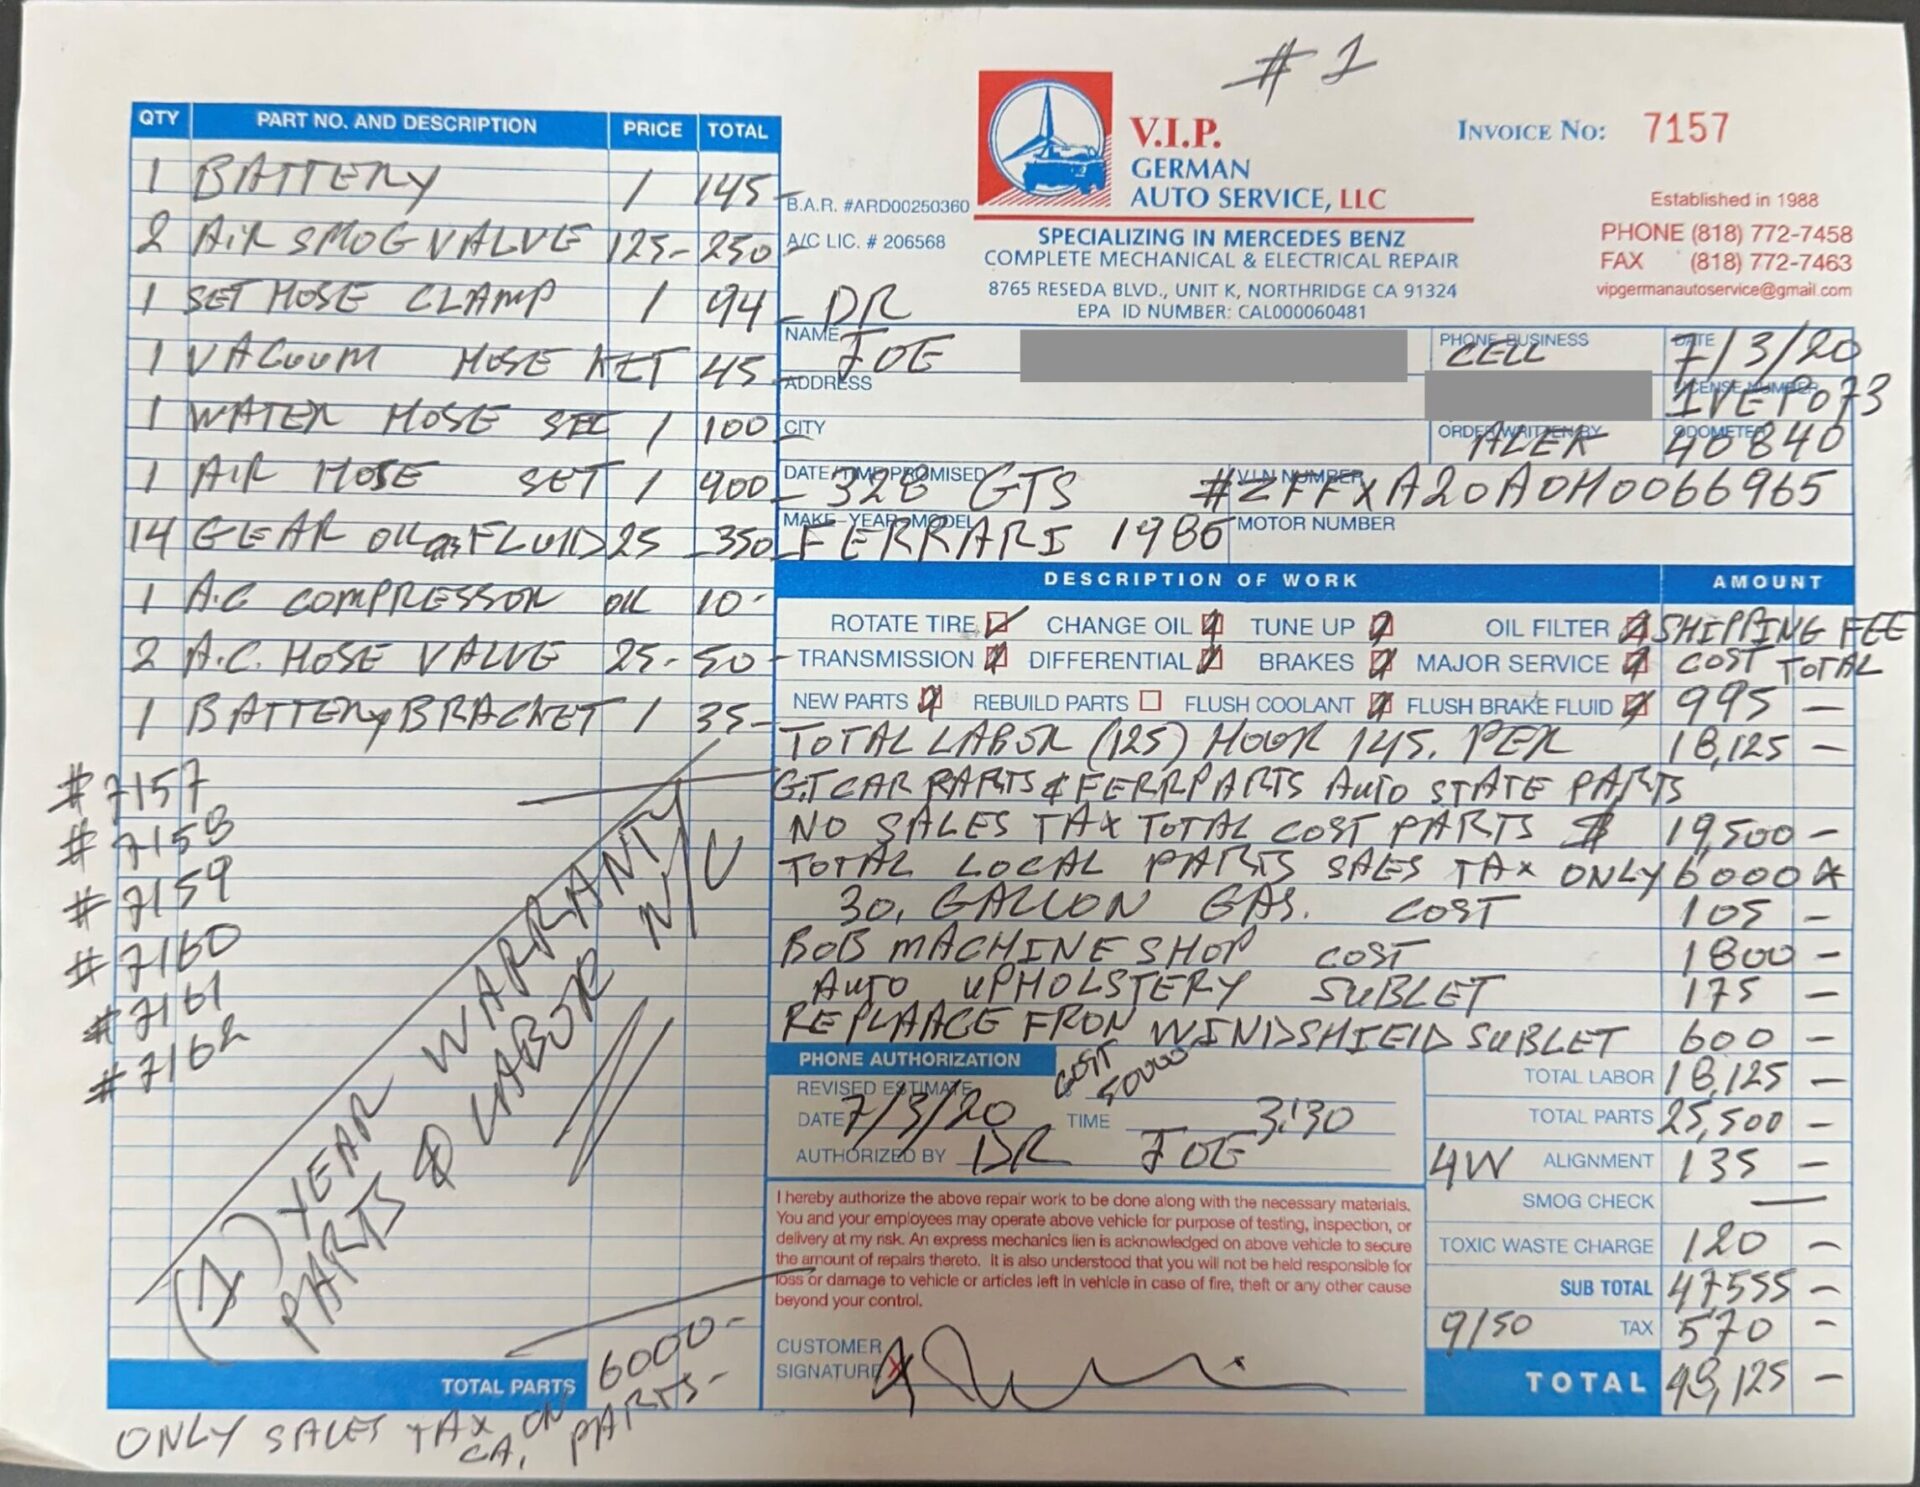 # 1
V.I.P.
GERMAN
AUTO SERVICE, LLC
INVOICE NO: 7157
Established in 1988
B.A.R. #ARD00250360
A/C LIC. # 206568
SPECIALIZING IN MERCEDES BENZ
COMPLETE MECHANICAL & ELECTRICAL REPAIR
8765 RESEDA BLVD., UNIT K, NORTHRIDGE CA 91324
EPA ID NUMBER: CAL000060481
PHONE (818) 772-7458
FAX (818) 772-7463
vipgermanautoservice@gmail.com
QTY PART NO. AND DESCRIPTION PRICE TOTAL
1 BATTERY / 145-
2 AIR SMOG VALVE 125- 250
1 SET HOSE CLAMP / 94-
1 VACUUM HOSE KET 45-
1 WATER HOSE SET / 100-
1 AIR HOSE SET / 900-
14 GEAR OIL FLUID 25 350-
1 A.C COMPRESSOR OIL 10-
2 A.C. HOSE VALVE 25- 50-
1 BATTERY BRACKET / 35-
#7157
#7158
#7159
#7160
#7161
#7162
(1) YEAR WARRANTY
PARTS & LABOR N/C
TOTAL PARTS 6000-
ONLY SALES TAX ON CA. PARTS-
NAME DR JOE
PHONE BUSINESS CELL
DATE 7/3/20
ADDRESS
LICENSE NUMBER 1VEP073
CITY
ORDER WRITTEN BY ALEK
ODOMETER 40840
DATE/TIME PROMISED 328 GTS
V.I.N NUMBER #ZFFXA20A0H0066965
MAKE-YEAR-MODEL FERRARI 1986
MOTOR NUMBER
DESCRIPTION OF WORK AMOUNT
ROTATE TIRE CHANGE OIL TUNE UP OIL FILTER SHIPPING FEE
TRANSMISSION DIFFERENTIAL BRAKES MAJOR SERVICE COST TOTAL
NEW PARTS REBUILD PARTS FLUSH COOLANT FLUSH BRAKE FLUID 995 -
TOTAL LABOR (125) HOUR 145. PER 18,125 -
G.T CAR PARTS & FERRPARTS AUTO STATE PARTS
NO SALES TAX TOTAL COST PARTS $ 19,500 -
TOTAL LOCAL PARTS SALES TAX ONLY 6000 *
30, GALLON GAS. COST 105 -
BOB MACHINE SHOP COST 1800 -
AUTO UPHOLSTERY SUBLET 175 -
REPLAACE FRON WINDSHIELD SUBLET 600 -
PHONE AUTHORIZATION
REVISED ESTIMATE COST 50000
DATE 7/3/20 TIME 3:30
AUTHORIZED BY DR JOE
I hereby authorize the above repair work to be done along with the necessary materials.
You and your employees may operate above vehicle for purpose of testing, inspection, or
delivery at my risk. An express mechanics lien is acknowledged on above vehicle to secure
the amount of repairs thereto. It is also understood that you will not be held responsible for
loss or damage to vehicle or articles left in vehicle in case of fire, theft or any other cause
beyond your control.
CUSTOMER
SIGNATURE X
TOTAL LABOR 18,125 -
TOTAL PARTS 25,500 -
4W ALIGNMENT 135 -
SMOG CHECK —
TOXIC WASTE CHARGE 120 -
SUB TOTAL 47555 -
9/50 TAX 570 -
TOTAL 48,125 -